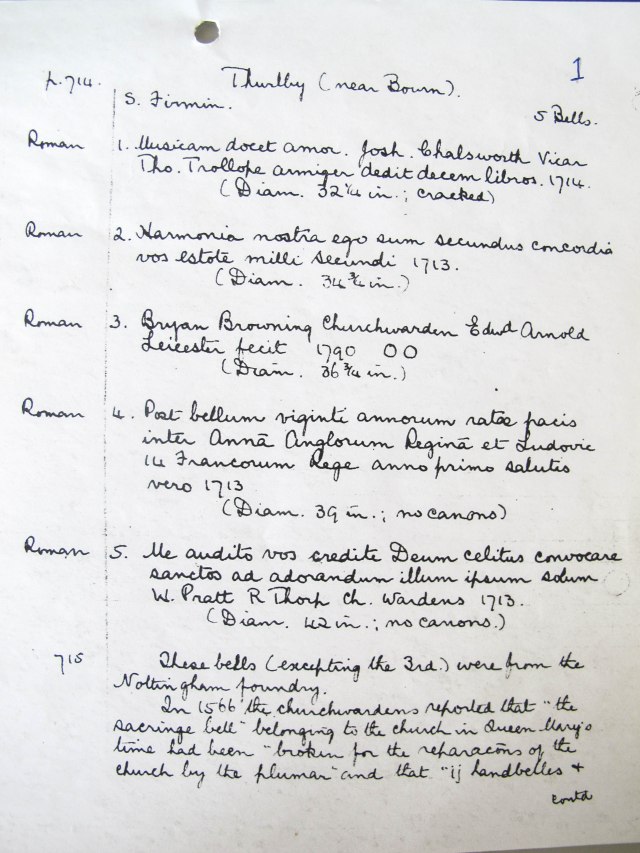 1
p. 714. Thurlby (near Bourn).
S. Firmin.
5 Bells.
Roman 1. Musicam docet amor. Josh. Chalsworth Vicar
Tho. Trollope armiger dedit decem libros. 1714.
(Diam. 32 1/4 in.; cracked)
Roman 2. Harmonia nostra ego sum secundus concordia
vos estote milli secundi 1713.
(Diam. 34 3/4 in.)
Roman 3. Bryan Browning Churchwarden Edwd Arnold
Leicester fecit 1790 OO
(Diam. 36 3/4 in.)
Roman 4. Post bellum viginti annorum ratæ pacis
inter Annā Anglorum Reginā et Ludovic
14 Francorum Rege anno primo salutis
vero 1713
(Diam. 39 in.; no canons)
Roman 5. Me audito vos credite Deum celitus convocare
sanctos ad adorandum illum ipsum solum
W. Pratt R Thorp Ch. Wardens 1713.
(Diam. 42 in.; no canons.)
715 These bells (excepting the 3rd.) were from the
Nottingham foundry.
In 1566 the churchwardens reported that "the
sacringe bell" belonging to the church in Queen Mary's
time had been "broken for the reparacōns of the
church by the plumar" and that "ij handbelles +
contd